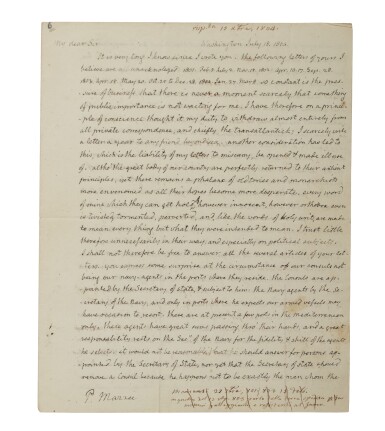 My dear Sir Washington July 18. 1804.
It is very long I know since I wrote you. the following letters of yours I
believe are unacknowledged.
sure of business that there is never a moment scarcely that something
of public importance is not waiting for me. I have therefore on a princi-
ple of conscience thought it my duty to withdraw almost entirely from
all private correspondence, and chiefly the transatlantic; I scarcely write
a letter a year to any friend beyond sea. another consideration has led to
this, which is the liability of my letters to miscarry, be opened & made ill use
of. altho' the great body of our country are perfectly returned to their antient
principles, yet there remains a phalanx of old tories and monarchists
more envenomed as all their hopes become more desperate. every word
of mine which they can get hold of, however innocent, however orthodox even
is twisted, tormented, perverted, and, like the words of holy writ, are made
to mean every thing but what they were intended to mean. I trust little
therefore unnecessarily in their way, and especially on political subjects.
I shall not therefore be free to answer all the several articles of your let-
ters. you express some surprise at the circumstance of our consuls not
being our navy-agents in the ports where they reside. the Consuls are ap-
pointed by the Secretary of state, & subject to him: the Navy agents by the Se-
cretary of the Navy, and only in ports where he expects our armed vessels may
have occasion to resort. there are at present a few ports in the Mediterranean
only. these agents have great sums passing thro' their hands, and a great
responsibility rests on the Secy. of the Navy for the fidelity & skill of the agents
he selects. it would not be reasonable that he should answer for persons ap-
pointed by the Secretary of State; nor yet that the Secretary of state should
remove a Consul because he happens not to be exactly the man whom the
P. Mazzei